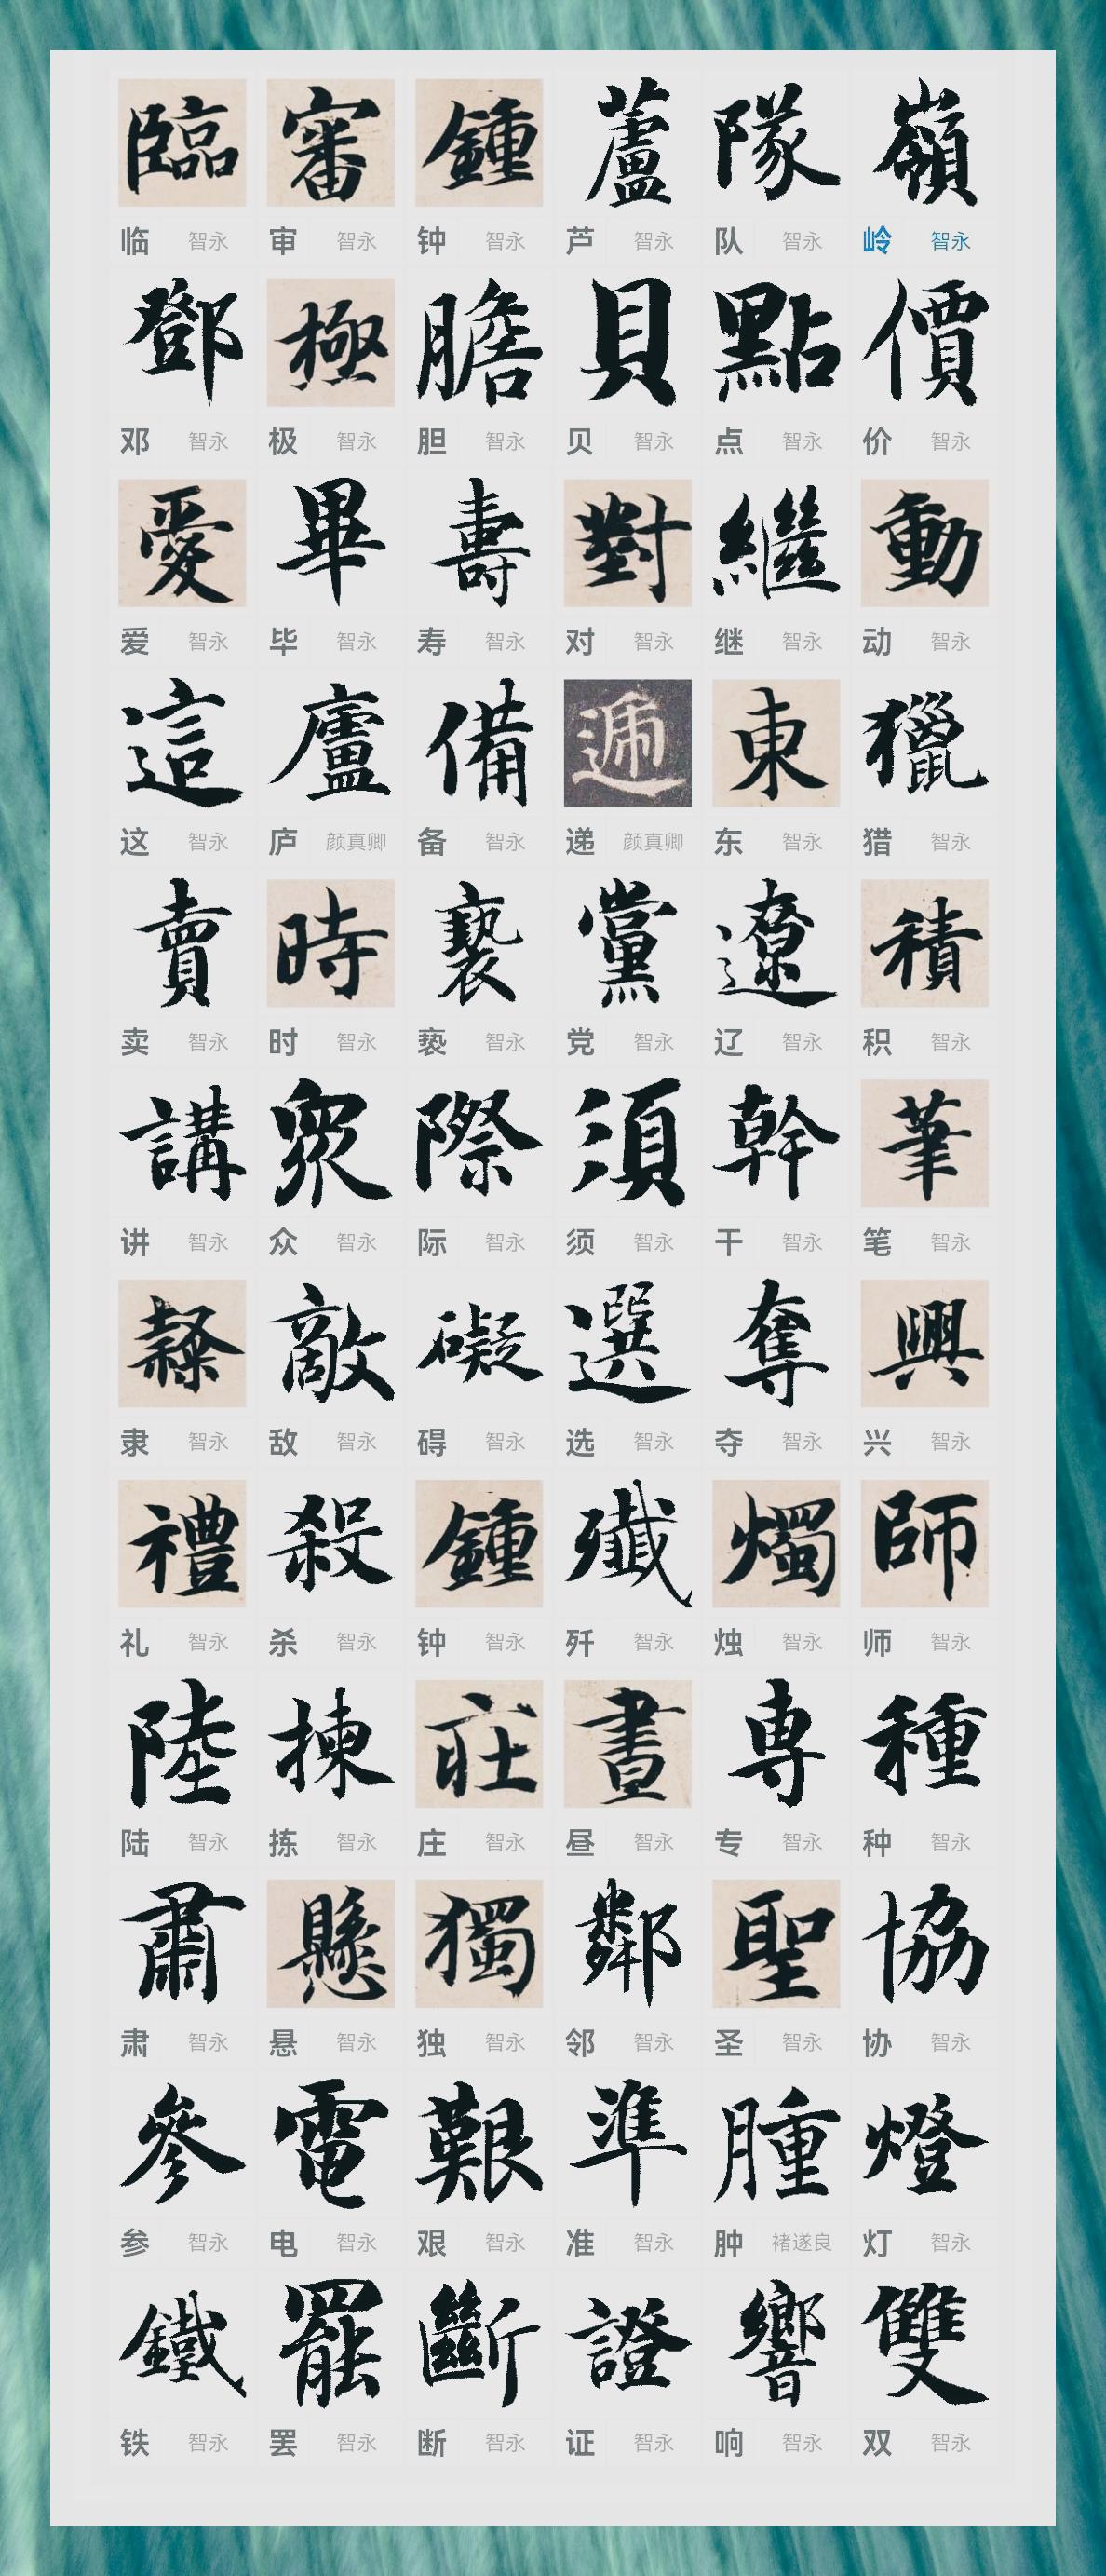 臨 審 鍾 蘆 隊 嶺
临 智永 审 智永 钟 智永 芦 智永 队 智永 岭 智永
鄧 極 膽 貝 點 價
邓 智永 极 智永 胆 智永 贝 智永 点 智永 价 智永
愛 畢 壽 對 繼 動
爱 智永 毕 智永 寿 智永 对 智永 继 智永 动 智永
這 廬 備 遞 東 獵
这 智永 庐 颜真卿 备 智永 递 颜真卿 东 智永 猎 智永
賣 時 褻 黨 遼 積
卖 智永 时 智永 亵 智永 党 智永 辽 智永 积 智永
講 眾 際 須 幹 筆
讲 智永 众 智永 际 智永 须 智永 干 智永 笔 智永
隸 敵 礙 選 奪 興
隶 智永 敌 智永 碍 智永 选 智永 夺 智永 兴 智永
禮 殺 鍾 殲 燭 師
礼 智永 杀 智永 钟 智永 歼 智永 烛 智永 师 智永
陸 揀 庄 晝 專 種
陆 智永 拣 智永 庄 智永 昼 智永 专 智永 种 智永
肅 懸 獨 鄰 聖 協
肃 智永 悬 智永 独 智永 邻 智永 圣 智永 协 智永
參 電 艱 準 腫 燈
参 智永 电 智永 艰 智永 准 智永 肿 褚遂良 灯 智永
鐵 罷 斷 證 響 雙
铁 智永 罢 智永 断 智永 证 智永 响 智永 双 智永